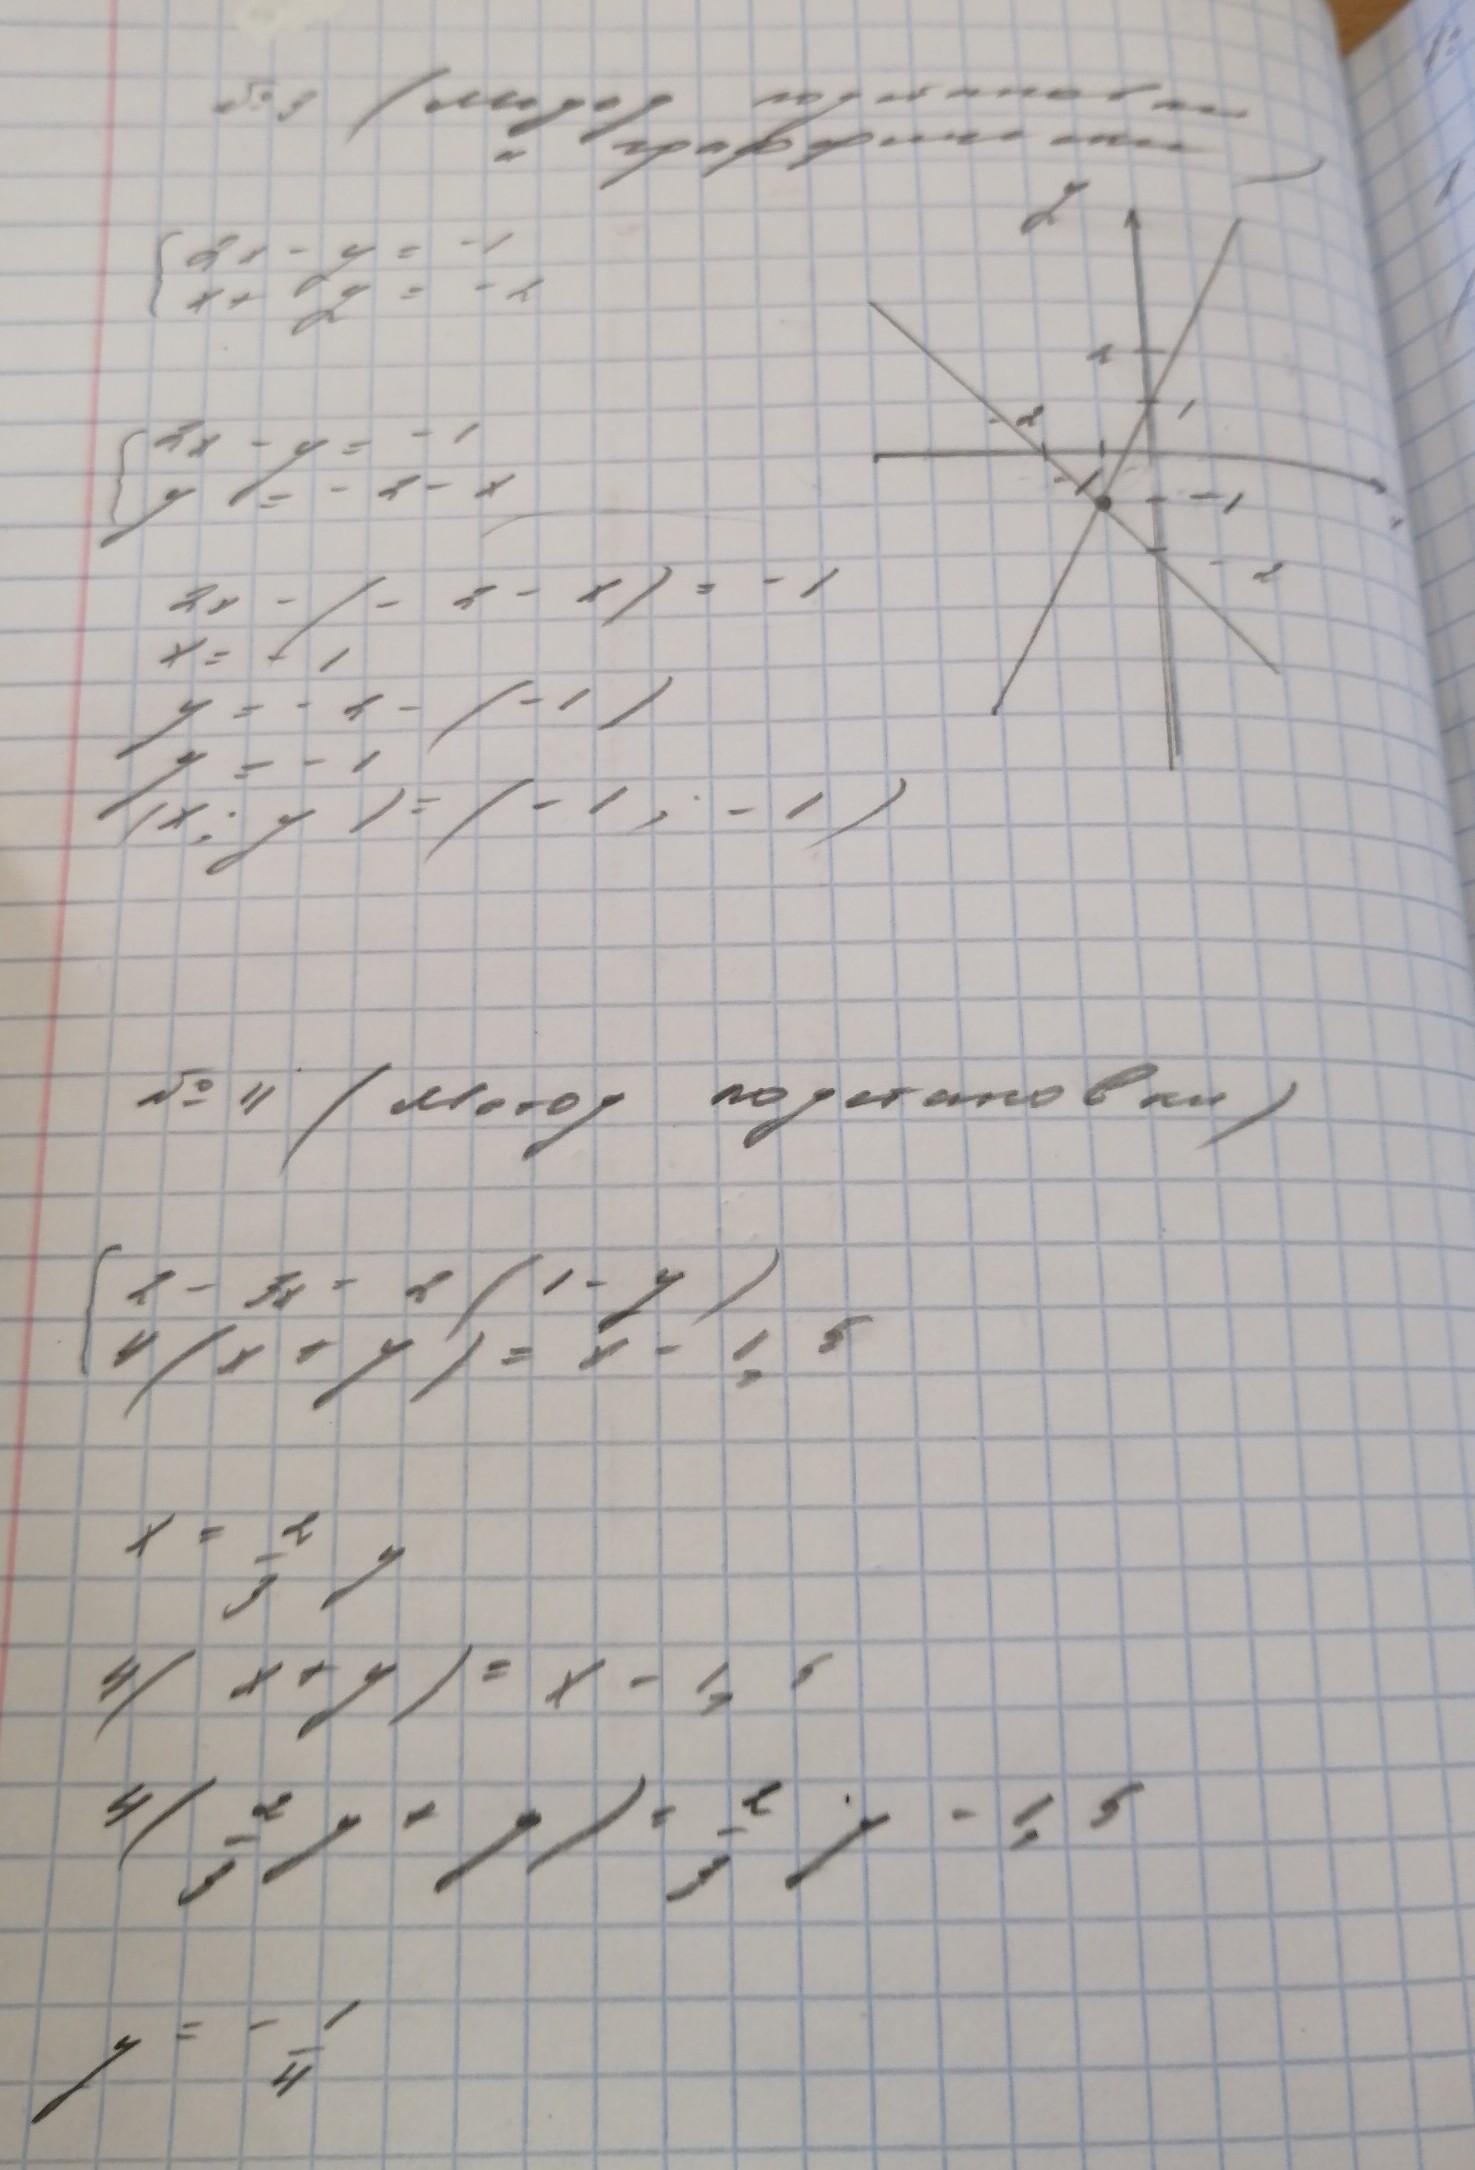 №3 (Метод подстановки
и графически)
2x - y = -1
x + y = -2
2x - y = -1
y = -2 - x
2x - (-2 - x) = -1
x = -1
y = -2 - (-1)
y = -1
(x; y) = (-1; -1)
y
2
1
-2
-1
-1
-2
x
№4 (Метод подстановки)
2 - 3x = 2(1 - y)
4(x + y) = x - 1,5
x = 2/3 y
4(x + y) = x - 1,5
4(2/3 y + y) = 2/3 y - 1,5
y = -1/4